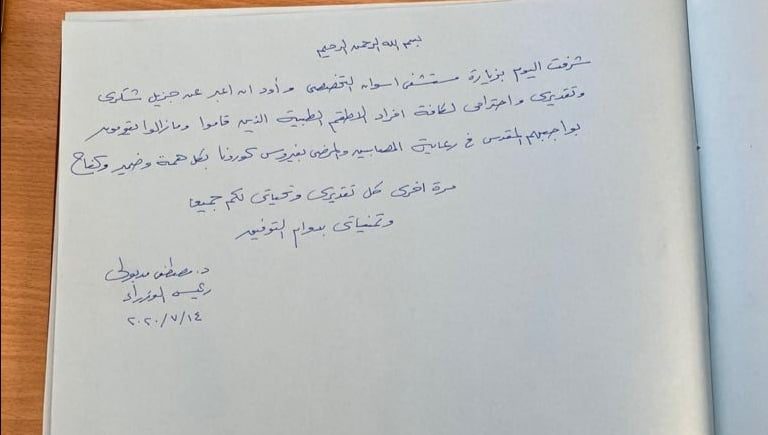 بسم الله الرحمن الرحيم
شرفت اليوم بزيارة مستشفى اسوان التخصصى و أود ان اعبر عن جزيل شكرى
وتقديرى و احترامى لكافة افراد الاطقم الطبية الذين قاموا ومازالوا يقومون
بواجبهم المقدس فى رعاية المصابين والمرضى بفيروس كورونا بكل همة وضمير وكفاح
مرة اخرى كل تقديرى وتحياتى لكم جميعا
وتمنياتى بدوام التوفيق
د. مصطفى مدبولى
رئيس الوزراء
٢٠٢٠/٧/١٤